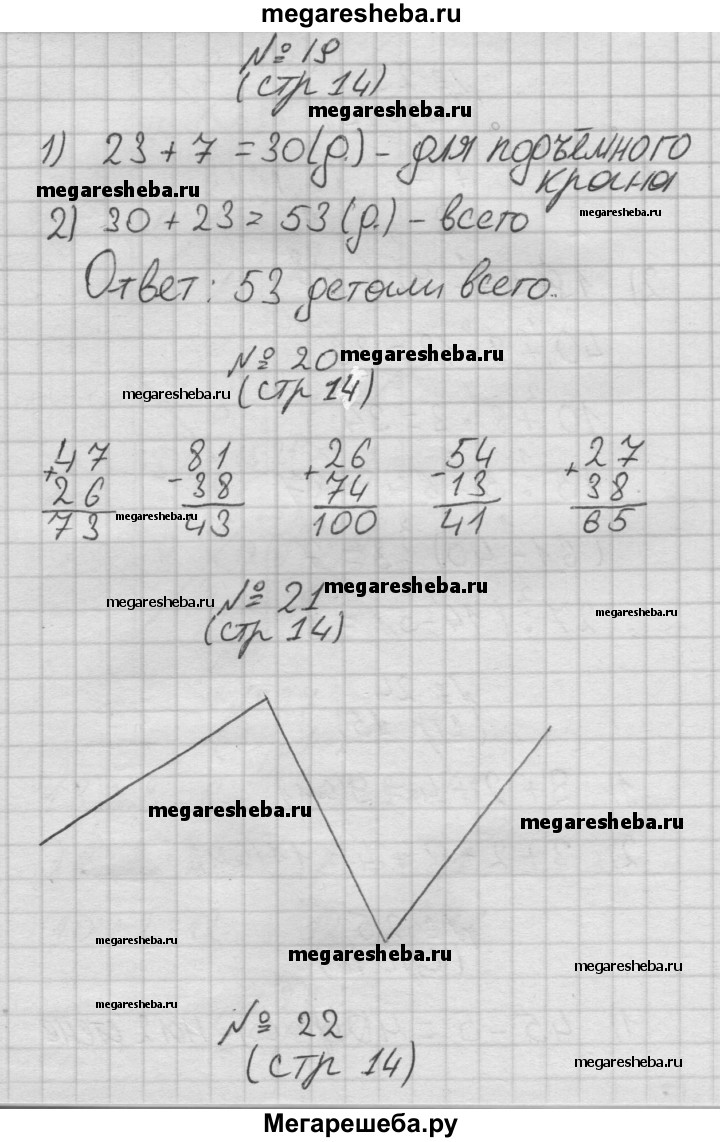 megaresheba.ru
№ 19
(стр 14)
megaresheba.ru
1) 23 + 7 = 30 (д.) - для подъёмного
крана
megaresheba.ru
megaresheba.ru
2) 30 + 23 = 53 (д.) - всего
Ответ: 53 детали всего.
№ 20 megaresheba.ru
megaresheba.ru (стр 14)
+47 -81 +26 -54 +27
26 38 74 13 38
73 megaresheba.ru 43 100 41 65
megaresheba.ru № 21 megaresheba.ru
(стр 14) megaresheba.ru
megaresheba.ru
megaresheba.ru
megaresheba.ru
megaresheba.ru
megaresheba.ru
megaresheba.ru
№ 22
(стр 14) megaresheba.ru
Мегарешеба.ру